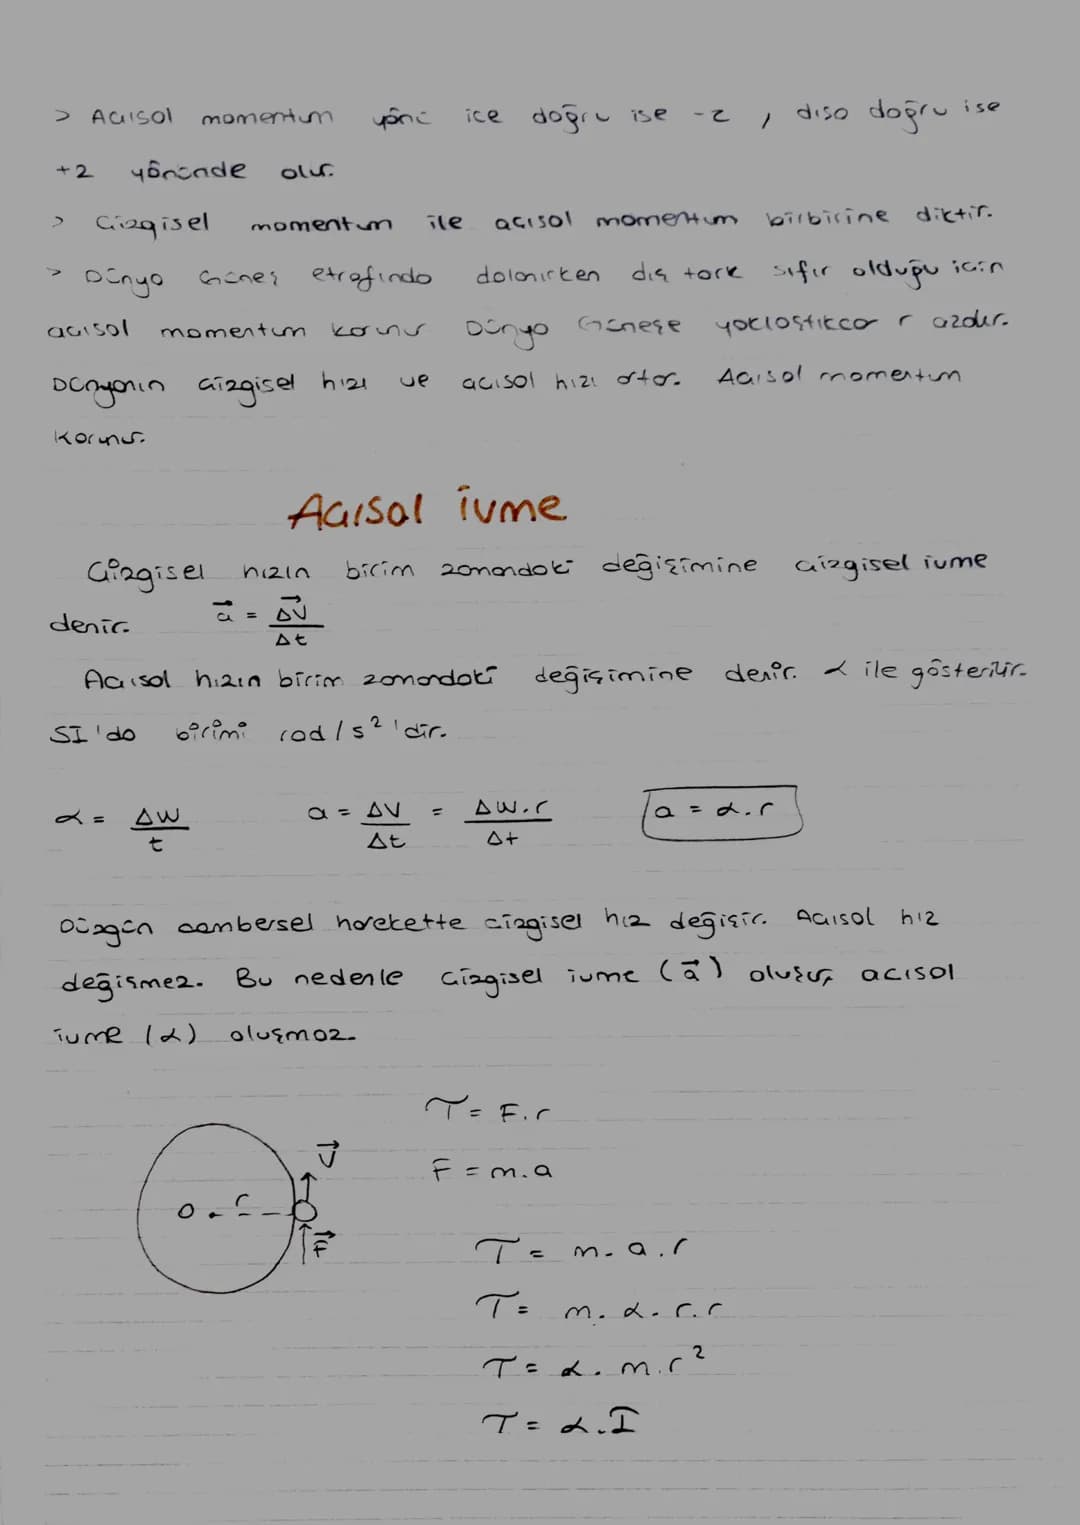 > Açısal momentum yönü içe doğru ise -z , dışa doğru ise
+z yönünde olur.
> Çizgisel momentum ile açısal momentum birbirine diktir.
> Dünya Güneş etrafında dolanırken dış tork sıfır olduğu için
açısal momentum korunur Dünya Güneşe yaklaştıkca r azalır.
Dünyanın çizgisel hızı ve açısal hızı artar. Açısal momentum
korunur.
Açısal ivme
Çizgisel hızın birim zamandaki değişimine çizgisel ivme
denir. a⃗ = Δv⃗ / Δt
Açısal hızın birim zamandaki değişimine denir. α ile gösterilir.
SI'da birimi rad/s² 'dir.
α = Δw / t a = ΔV / Δt = Δw.r / Δt a = α.r
Düzgün çembersel harekette çizgisel hız değişir. Açısal hız
değişmez. Bu nedenle çizgisel ivme (a⃗) oluşur, açısal
ivme (α) oluşmaz.
τ = F.r
V⃗
F = m.a
O r
F⃗
τ = m.a.r
τ = m.α.r.r
τ = α.m.r²
τ = α.I